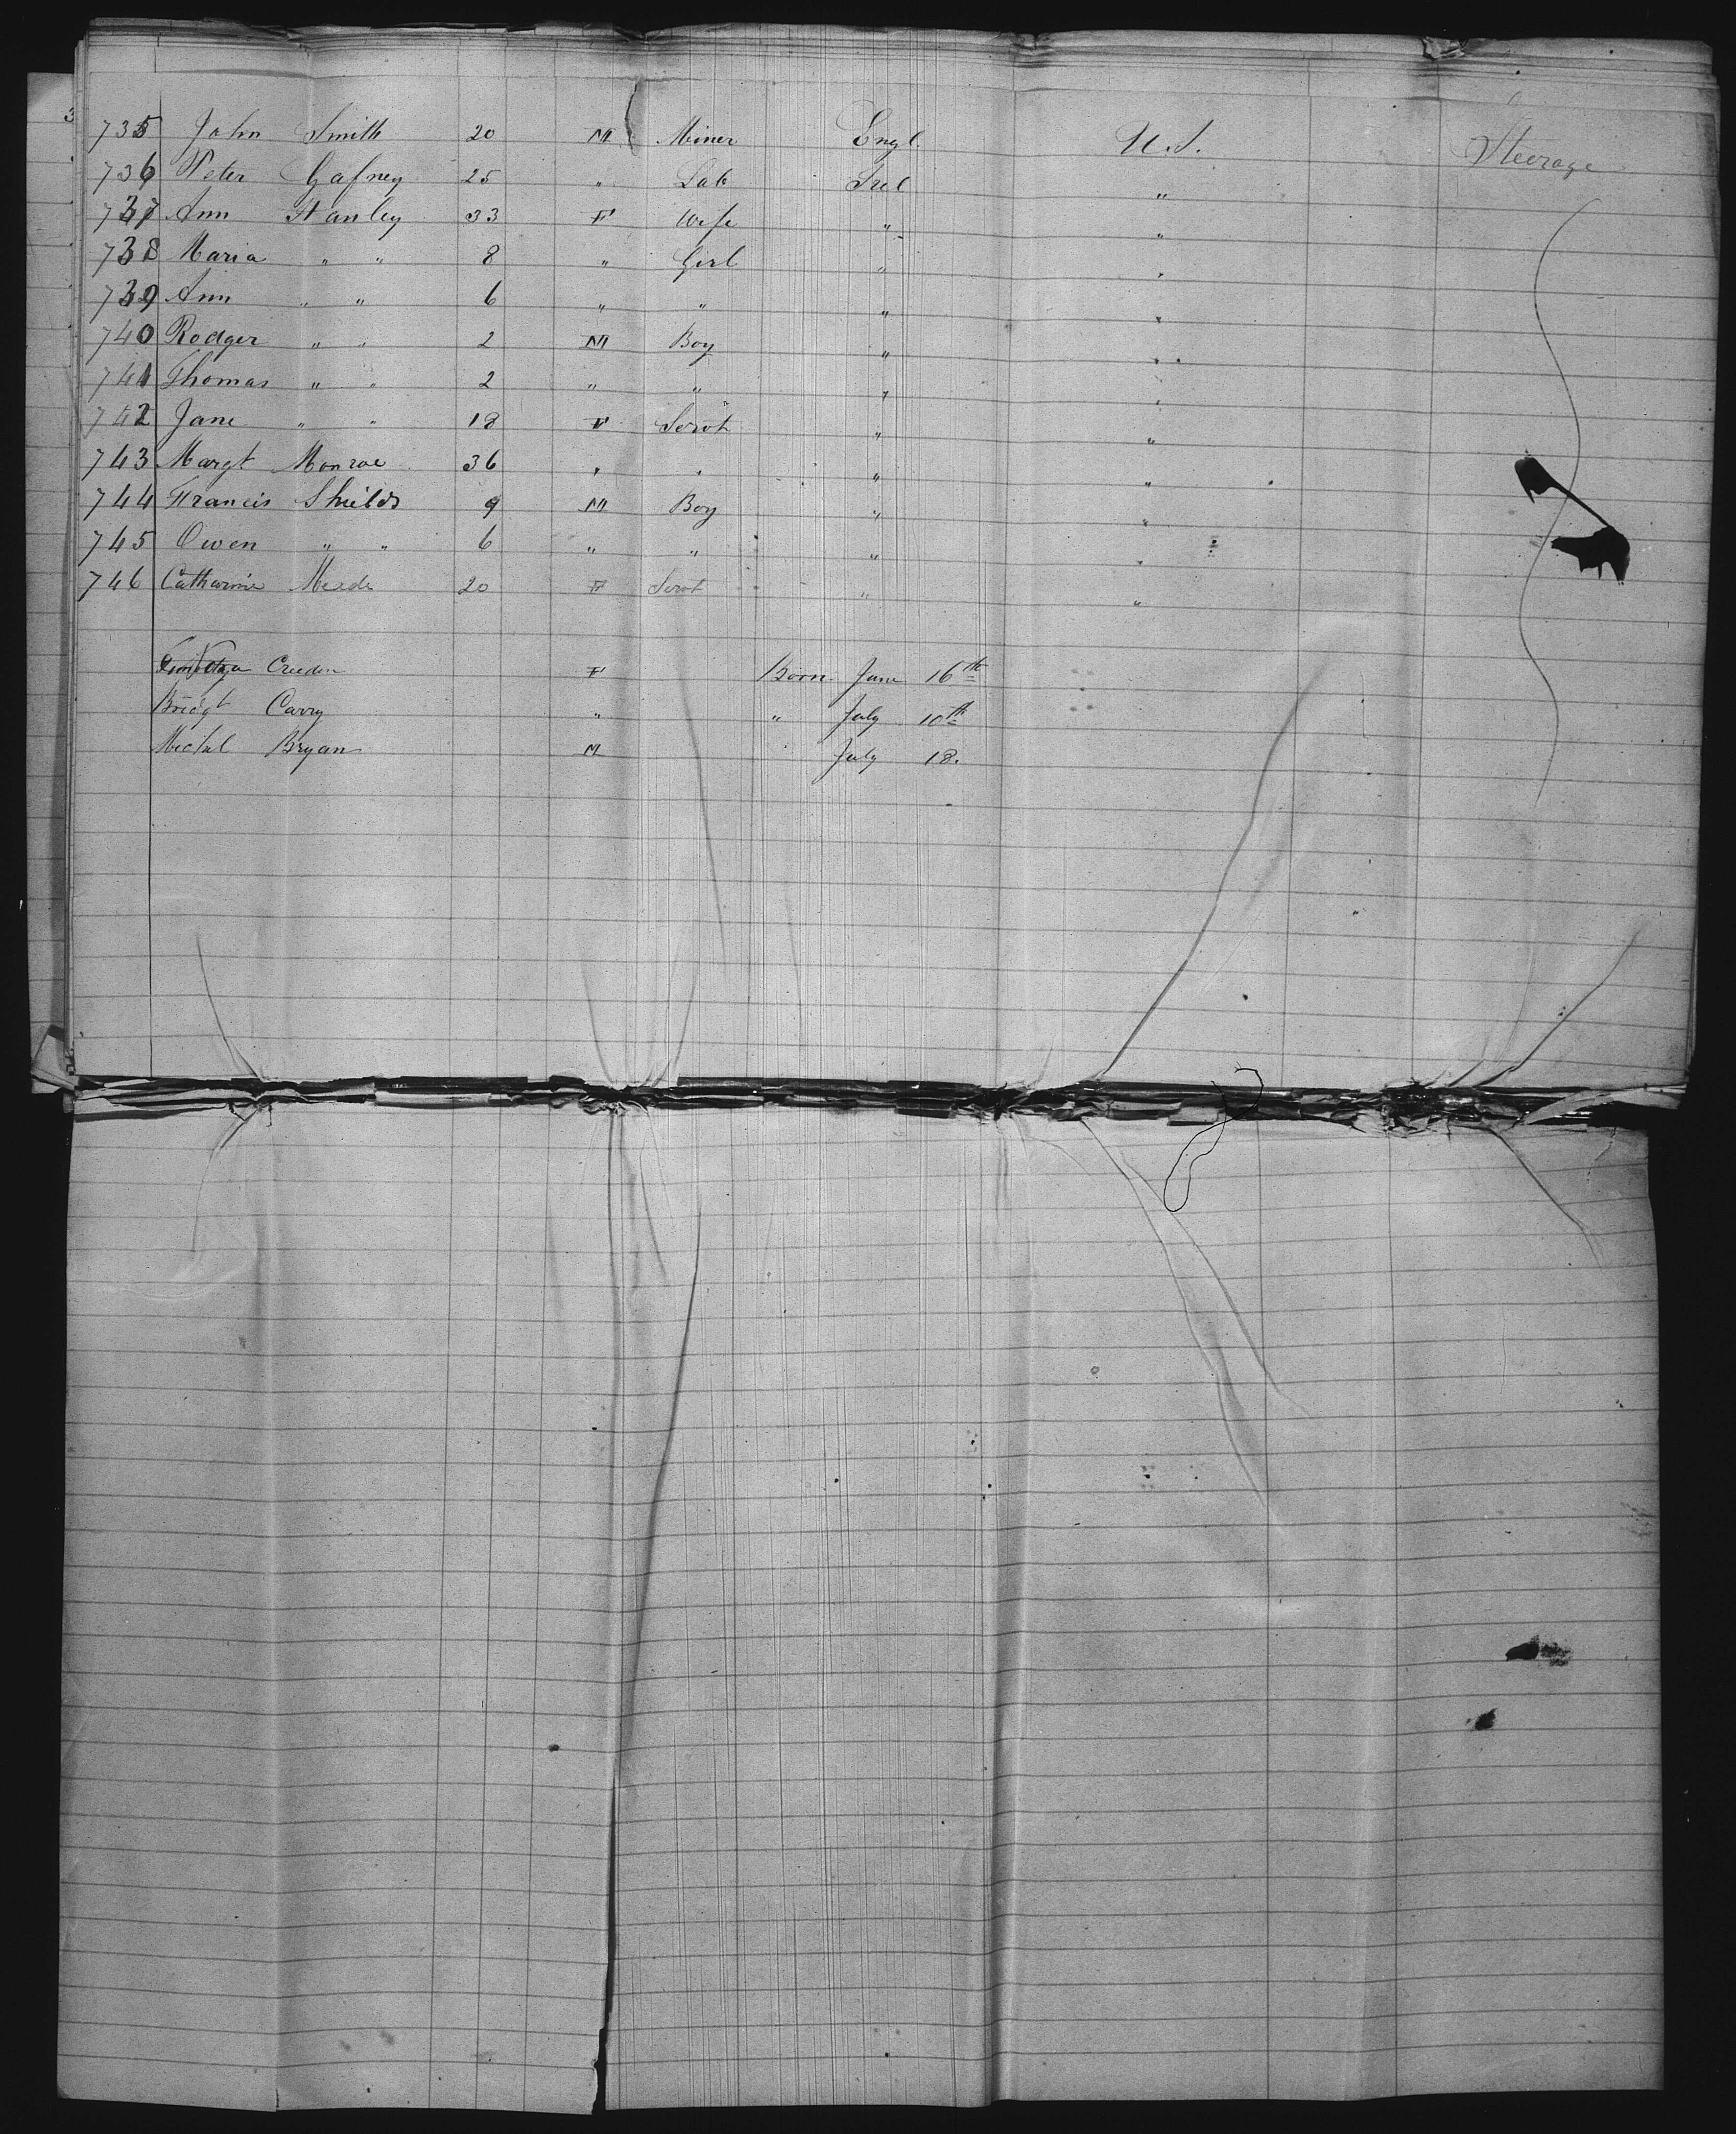 735 John Smith 20 M Miner Engl U.S. Steerage
736 Peter Gafney 25 " Lab Irel "
737 Ann Stanley 33 F Wife " "
738 Maria " " 8 " Girl " "
739 Ann " " 6 " " " "
740 Rodger " " 2 M Boy " "
741 Thomas " " 2 " " " "
742 Jane " " 18 F Servt " "
743 Margt Monroe 36 " " " "
744 Francis Shields 9 M Boy " "
745 Owen " " 6 " " " "
746 Catharine Meede 20 F Servt " "
Creeden F Born June 16th
Bridgt Carry " " July 10th
Michal Bryan M July 18.